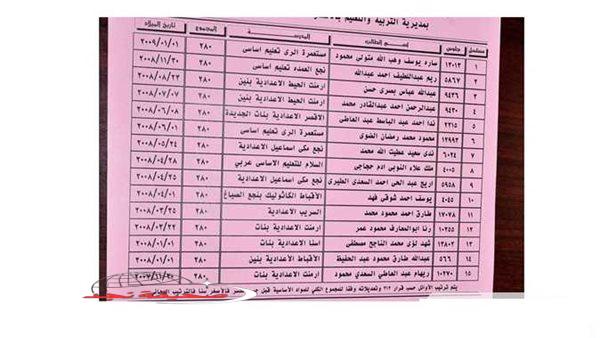 بمديرية التربية والتعليم
مسلسل جلوس اسم الطالب المدرسة المجموع تاريخ الميلاد
١ ١٣٠١٣ ساره يوسف وهب الله متولى محمود مستعمرة الرى تعليم اساسى ٢٨٠ ٢٠٠٩/٠١/٠١
٢ ٥٨٦٧ ريم عبداللطيف احمد عبدالله نجع العمده تعليم اساسى ٢٨٠ ٢٠٠٨/١١/٣٠
٣ ٩٤٣٦ عبدالله عباس بصرى حسن ارمنت الحيط الاعدادية بنين ٢٨٠ ٢٠٠٨/٠٨/٢٣
٤ ٩٤٣٠ عبدالرحمن احمد عبدالقادر محمد ارمنت الحيط الاعدادية بنين ٢٨٠ ٢٠٠٨/٠٧/٠٧
٥ ٢٣١٥ ندا احمد عبد الباسط عبد العاطى الاقصر الاعدادية بنات الجديدة ٢٨٠ ٢٠٠٨/٠٦/٠٨
٦ ١٢٩٩٣ محمود محمد رمضان الضوى مستعمرة الرى تعليم اساسى ٢٨٠ ٢٠٠٨/٠٦/٠١
٧ ٦٠٢٤ ندى سعيد عطيت الله محمد نجع مكى اسماعيل الاعدادية ٢٨٠ ٢٠٠٨/٠٥/٢٤
٨ ٤٠٠٥ ملك علاء النوبي ادم حجاجى السلام للتعليم الاساسى عربي ٢٨٠ ٢٠٠٨/٠٤/٢٨
٩ ٥٩٥٨ اريج عبد الحى احمد السعدى الطيرى نجع مكى اسماعيل الاعدادية ٢٨٠ ٢٠٠٨/٠٤/٢٤
١٠ ٤٠٤٥ يوسف احمد شوقى فهد الأقباط الكاثوليك بنجع الصياغ ٢٨٠ ٢٠٠٨/٠٤/٠١
١١ ١٧٠٧٨ طارق احمد محمود محمد السريب الاعدادية ٢٨٠ ٢٠٠٨/٠٣/٢٥
١٢ ١٠٢٥٥ رنا ابوالمعارف محمود عمر ارمنت الاعدادية بنات ٢٨٠ ٢٠٠٨/٠٣/٢٢
١٣ ١٣٨٠٢ شهد لؤى محمد الناجح مصطفى اسنا الاعدادية بنات ٢٨٠ ٢٠٠٨/٠١/٠١
١٤ ٥٦٦ عبدالله طارق محمود عبد الحفيظ الأقباط الاعدادية بنين ٢٨٠ ٢٠٠٨/٠١/٠١
١٥ ١٠٢٧٠ ريهام عبد العاطي السعدي محمود ارمنت الاعدادية بنات ٢٨٠
يتم ترتيب الأوائل حسب قرار ٣١٣ وتعديلاته وفقا للمجموع الكلي للمواد الأساسية قبل فالأصغر سنا فالترتيب